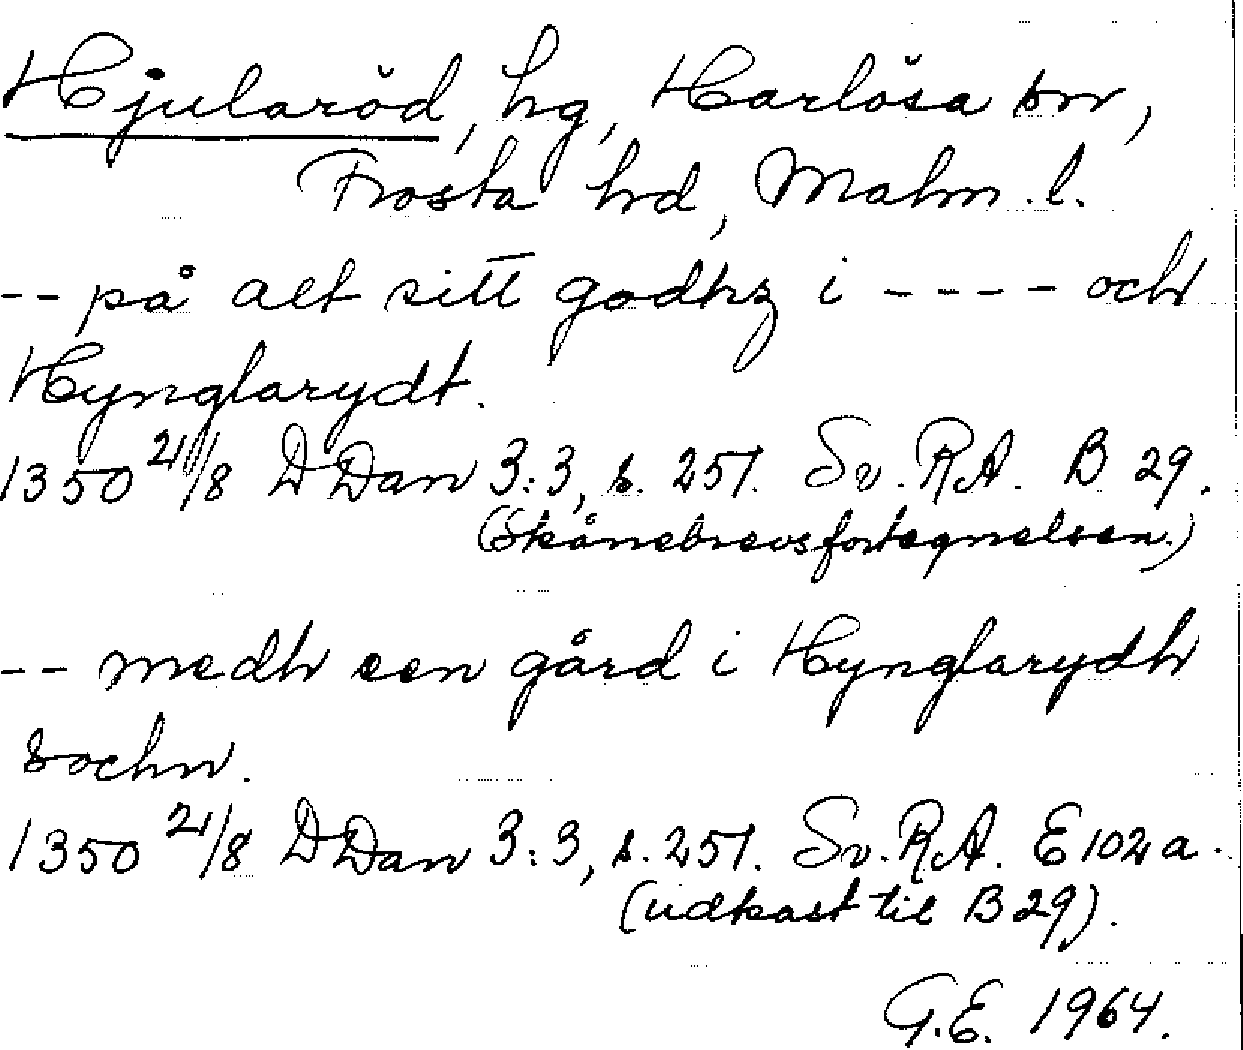 Hjularöd, hg, Harlösa sn,
Frosta hd, Malm. l.
-- på alt sitt godhz i ---- och
Hynglarydt.
1350 21/8 DDan 3:3, s. 251. Sv. RA. B 29.
(Skånebrevsfortegnelsen.)
-- medh een gård i Hynglarydh
sochn.
1350 21/8 DDan 3:3, s. 251. Sv. RA. E 102 a.
(udkast til B 29).
G.E. 1964.